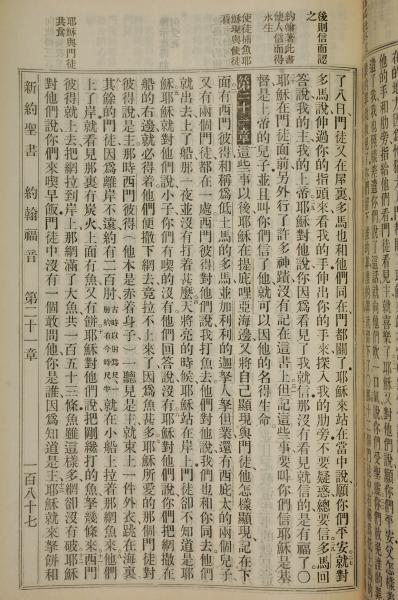 後則信而認
之
約翰著此書
使他人信而得
永生
使徒捕魚耶
穌現與使徒
看
耶穌與門徒
共食
了八日門徒又在屋裏多馬也和他們同在門都關了耶穌來站在當中說願你們平安就對
多馬說伸過你的指頭來看我的手伸出你的手來探入我的肋旁不要疑惑總要信多馬回
答說我的主我的上帝耶穌對他說你因爲看見了我就信那沒有看見我就信的是有福了〇
耶穌在門徒面前另外行了許多神蹟沒有記在這書上但記這些事要叫你們信耶穌是基
督是上帝的兒子並且叫你們信了他就可以因他的名得生命
第二十一章 這些事以後耶穌在提庇哩亞海邊又將自己顯現與門徒他怎樣顯現記在下
面有西門彼得和稱爲低土馬的多馬並加利利的迦拏人拏但業還有西庇太的兩個兒子
又有兩個門徒都在一處西門彼得對他們說我打魚去他們說我們也和你同去他們
就出去上了船那一夜並沒有打着甚麼天將亮的時候耶穌站在岸上門徒卻不知道是耶
穌耶穌就對他們說小子你們有喫的沒有他們回答說沒有耶穌對他們說你們把網撒在
船的右邊就必得着他們便撒下網去竟拉不上來了因爲魚甚多耶穌所愛的那個門徒對
彼得說是主那時西門彼得(他本是赤着身子)聽見是主就束上一件外衣跳在海裏
其餘的門徒因爲離岸不遠約有二百肘古時以肘爲尺一肘約有今時尺半就在小船上拉着那網魚來他們
上了岸就看見那裏有炭火上面有魚又有餅耶穌對他們說把剛纔打的魚拏幾條來西門
彼得就上去把網拉到岸上那網滿了大魚共一百五十三條魚雖這樣多網卻沒有破耶穌
對他們說你們來喫早飯門徒中沒有一個敢問他你是誰因爲知道是主耶穌就來拏餅和
新約聖書 約翰福音 第二十一章 一百八十七